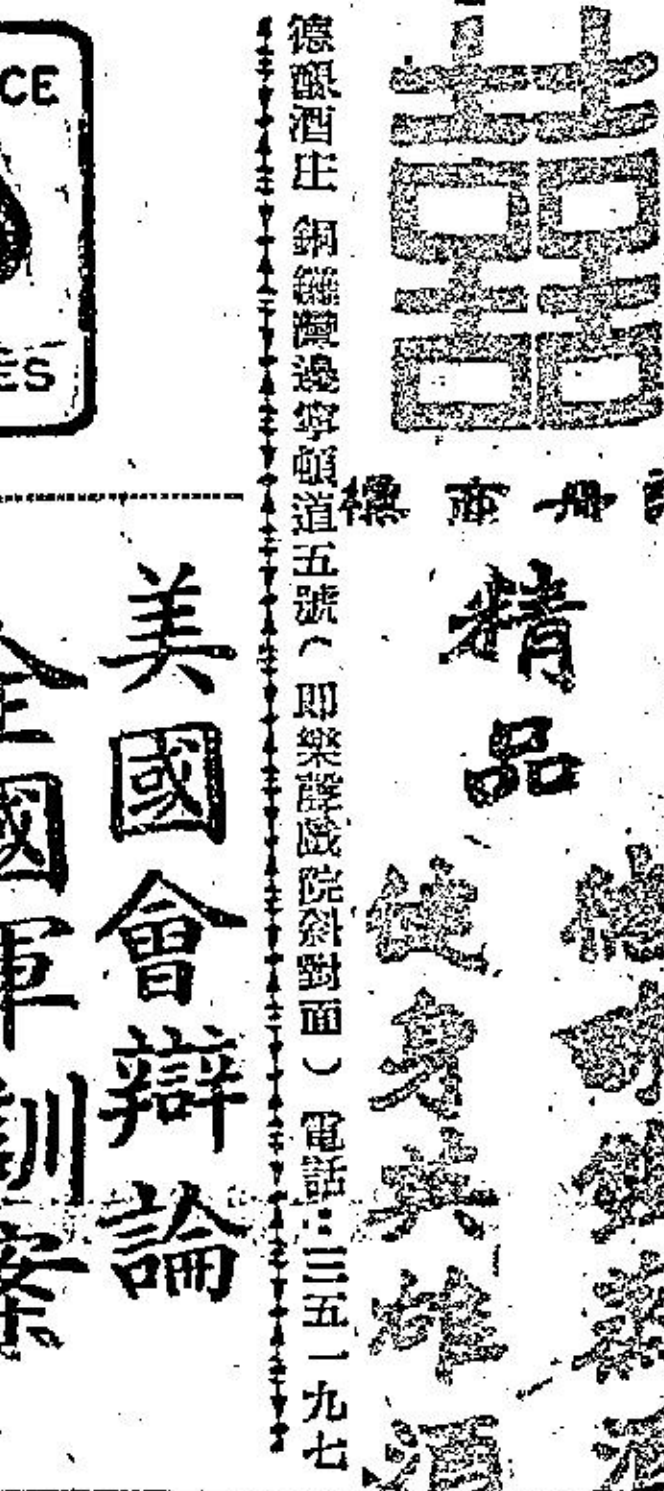 囍
標商冊
精品
健身英雄酒
德酿酒庄 銅鑼灣邊寧頓道五號(即樂聲戲院斜對面)電話:三五一九七
美國會辯論
全國軍訓案
CE
ES